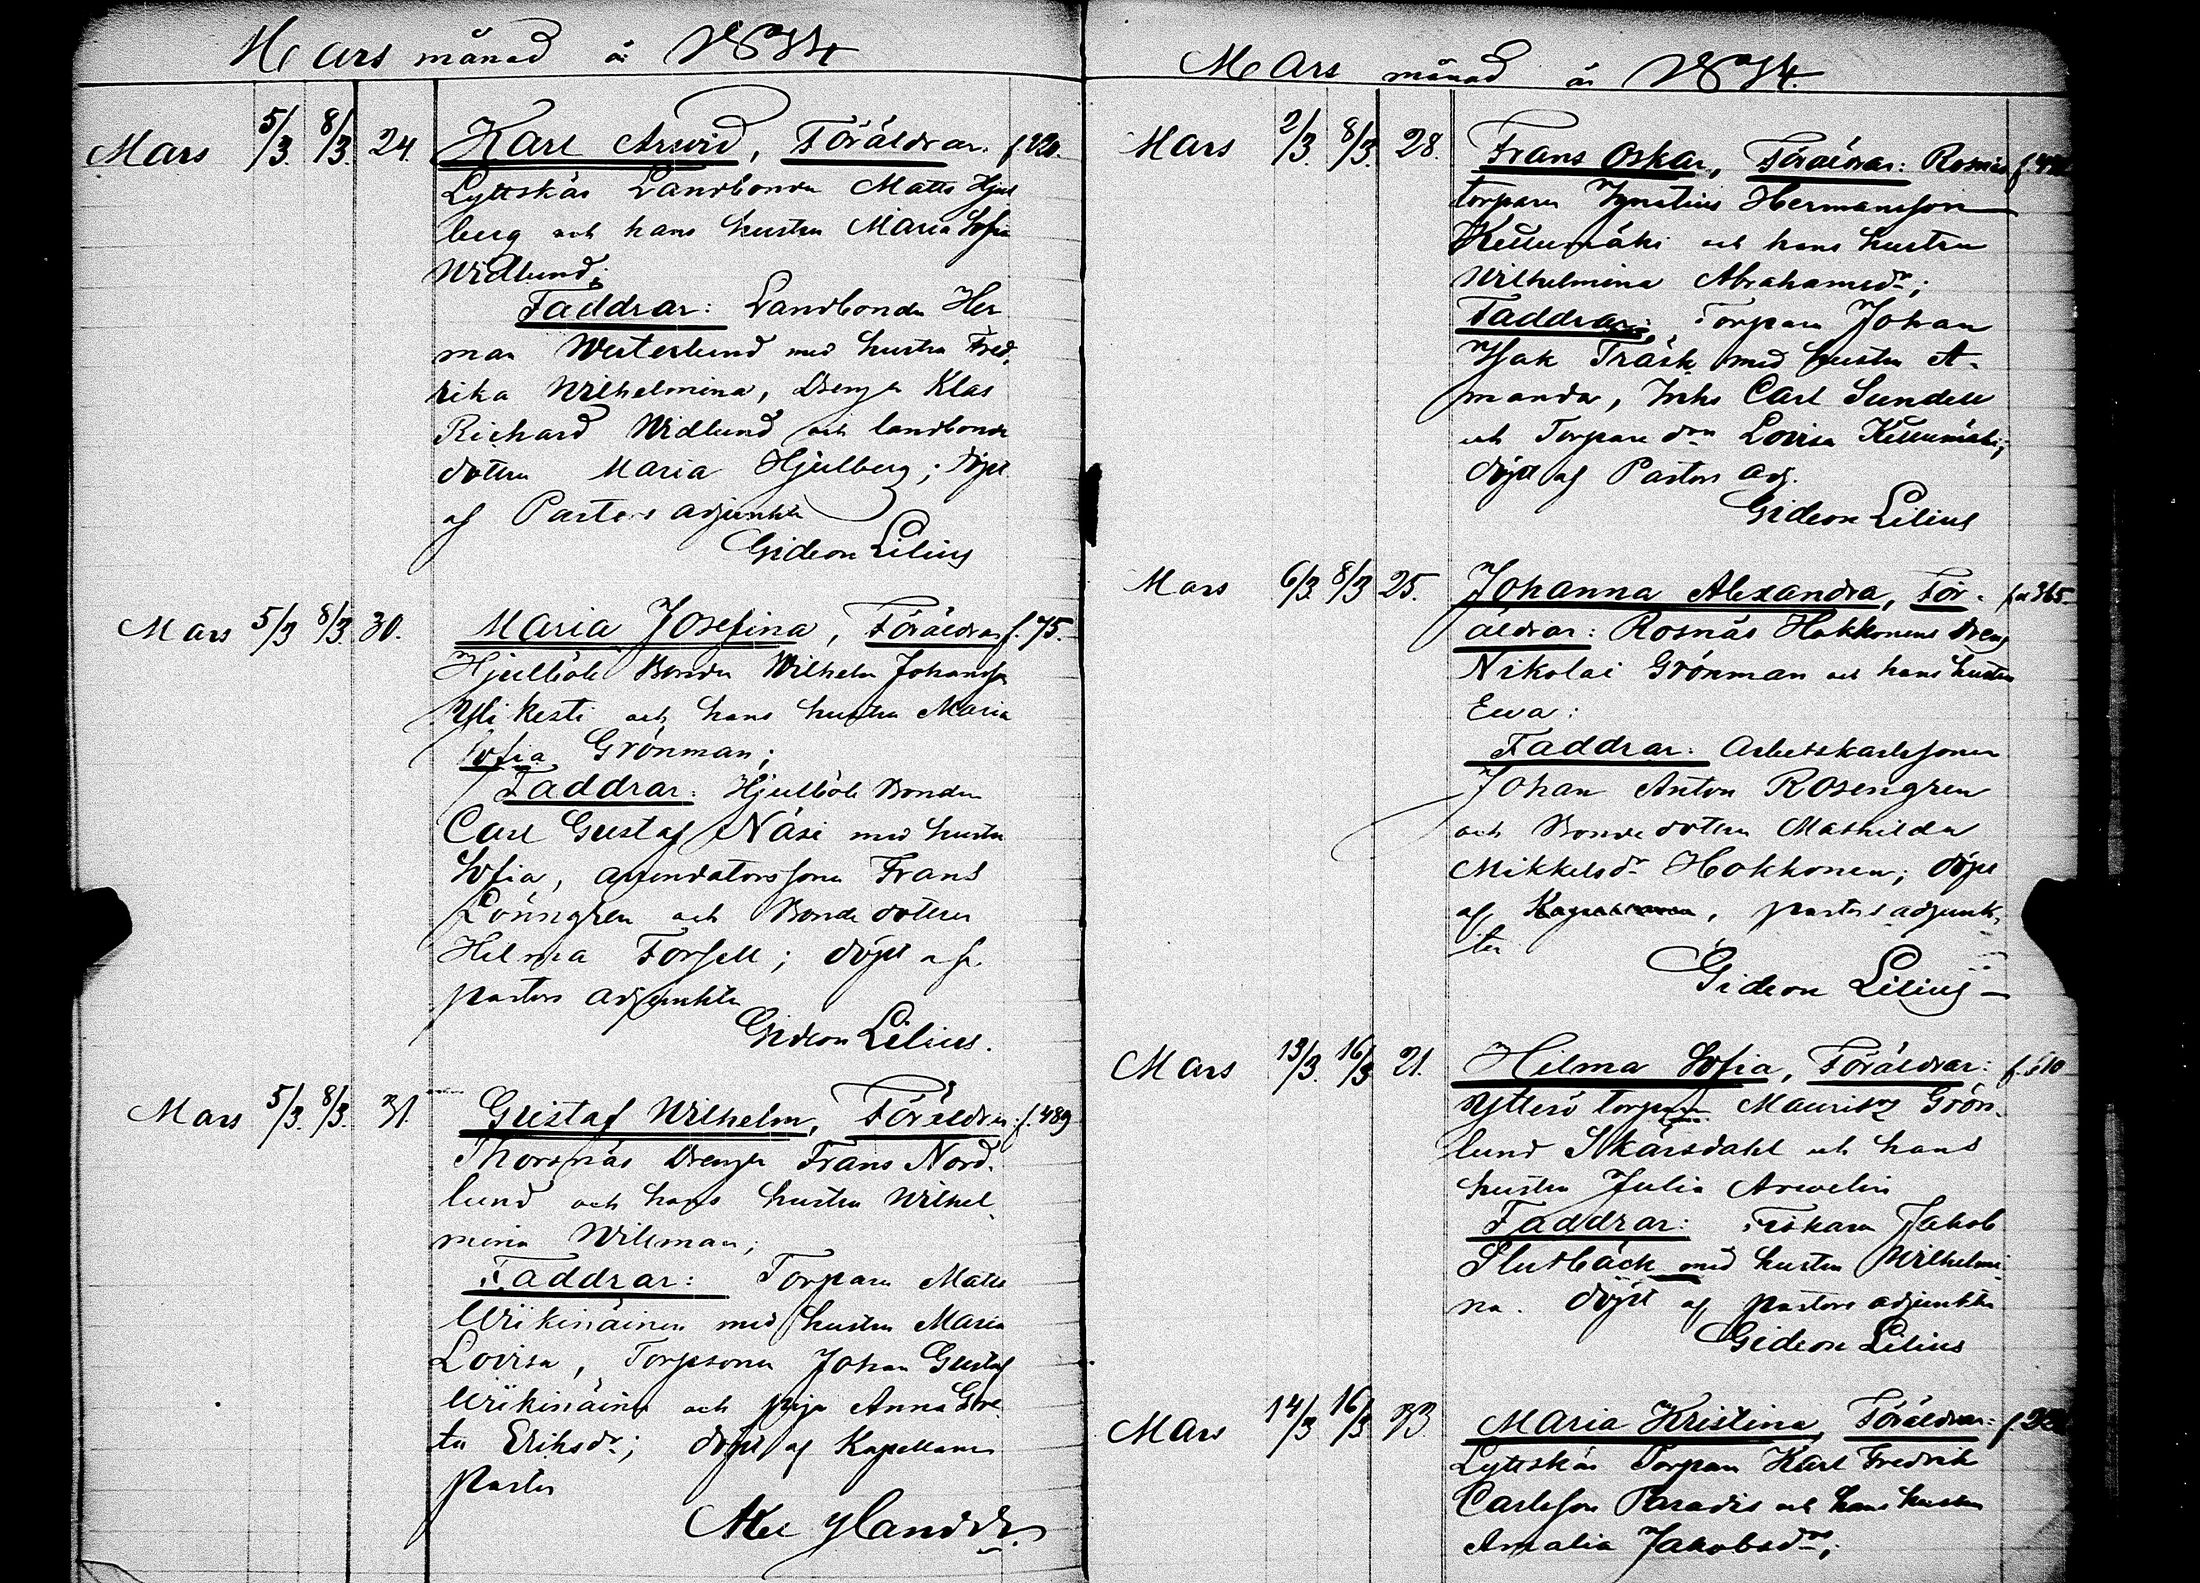 Mars månad år 1884
Mars 5/3 8/3 24. Karl Arvid, Föräldrar:
Lyttskär Landbonden Matts Hjul
berg och hans hustru Maria Sofia
Widlund;
Faddrar: Landbonden Her
man Westerlund med hustru Fred.
rika Wilhelmina, Drengen Klas
Richard Widlund och landbonde
dottern Maria Hjulberg; döpt
af Pastors adjunkten
Gideon Lilius
Mars 5/3 8/3 30. Maria Josefina, Föräldrar f. 75.
Hjulböle Bonden Wilhelm Johansson
Yli kesti och hans hustru Maria
Sofia Grönman;
Faddrar: Hjulböle Bonden
Carl Gustaf Näsi med hustru
Sofia, arrendatorssonen Frans
Lönngren och Bondedottern
Hilma Forsell; döpt af
pastors adjunkten
Gideon Lilius.
Mars 5/3. 8/3. 31. Gustaf Wilhelm, Föräldrar: f. 489
Thorsnäs Drengen Frans Nord-
lund och hans hustru Wilhel-
mina Willman;
Faddrar: Torparen Matts
Wiikinäinen med hustru Maria
Lovisa, Torpsonen Johan Gustaf
Wiikinäinen och piga Anna Gre-
ta Eriksdr; döpt af Kapellanen
Pastor
Mars månad år 1884.
Mars 2/3. 8/3. 28. Frans Oskar, Föräldrar: Rosnäs
torparen Ignatius Hermansson
Kellumäki och hans hustru
Wilhelmina Abrahamsdr;
Faddrar: Torparen Johan
Isak Träsk med hustru A-
manda, Inhs Carl Sundell
och Torpare drn Lovisa Kellumäki;
döpt af Pastors adj.
Gideon Lilius
Mars 6/3 8/3 25. Johanna Alexandra, För- 365.
äldrar: Rosnäs Hokkonens Dreng
Nikolai Grönman och hans hustru
Ewa:
Faddrar: Arbetskarlssonen
Johan Anton Rosengren
och Bondedottern Mathilda
Mikkelsdr Hokkonen; döpt
af Kapellanen, pastors adjunk-
ten
Gideon Lilius
Mars 13/3. 16/3 21. Hilma Sofia, Föräldrar:
Ytterö torparen Mauritz Grön-
lund Skärsdahl och hans
hustru Julia Arvelin
Faddrar: Fiskaren Jakob
Slutbäck med hustru Wilhelmi-
na. Döpt af pastors adjunkten
Gideon Lilius
Mars 14/3 16/3 33 Maria Kristina, Föräldrar:
Lyttskär Torparen Karl Fredrik
Carlsson Paradis och hans hustru
Amalia Jakobsdr;